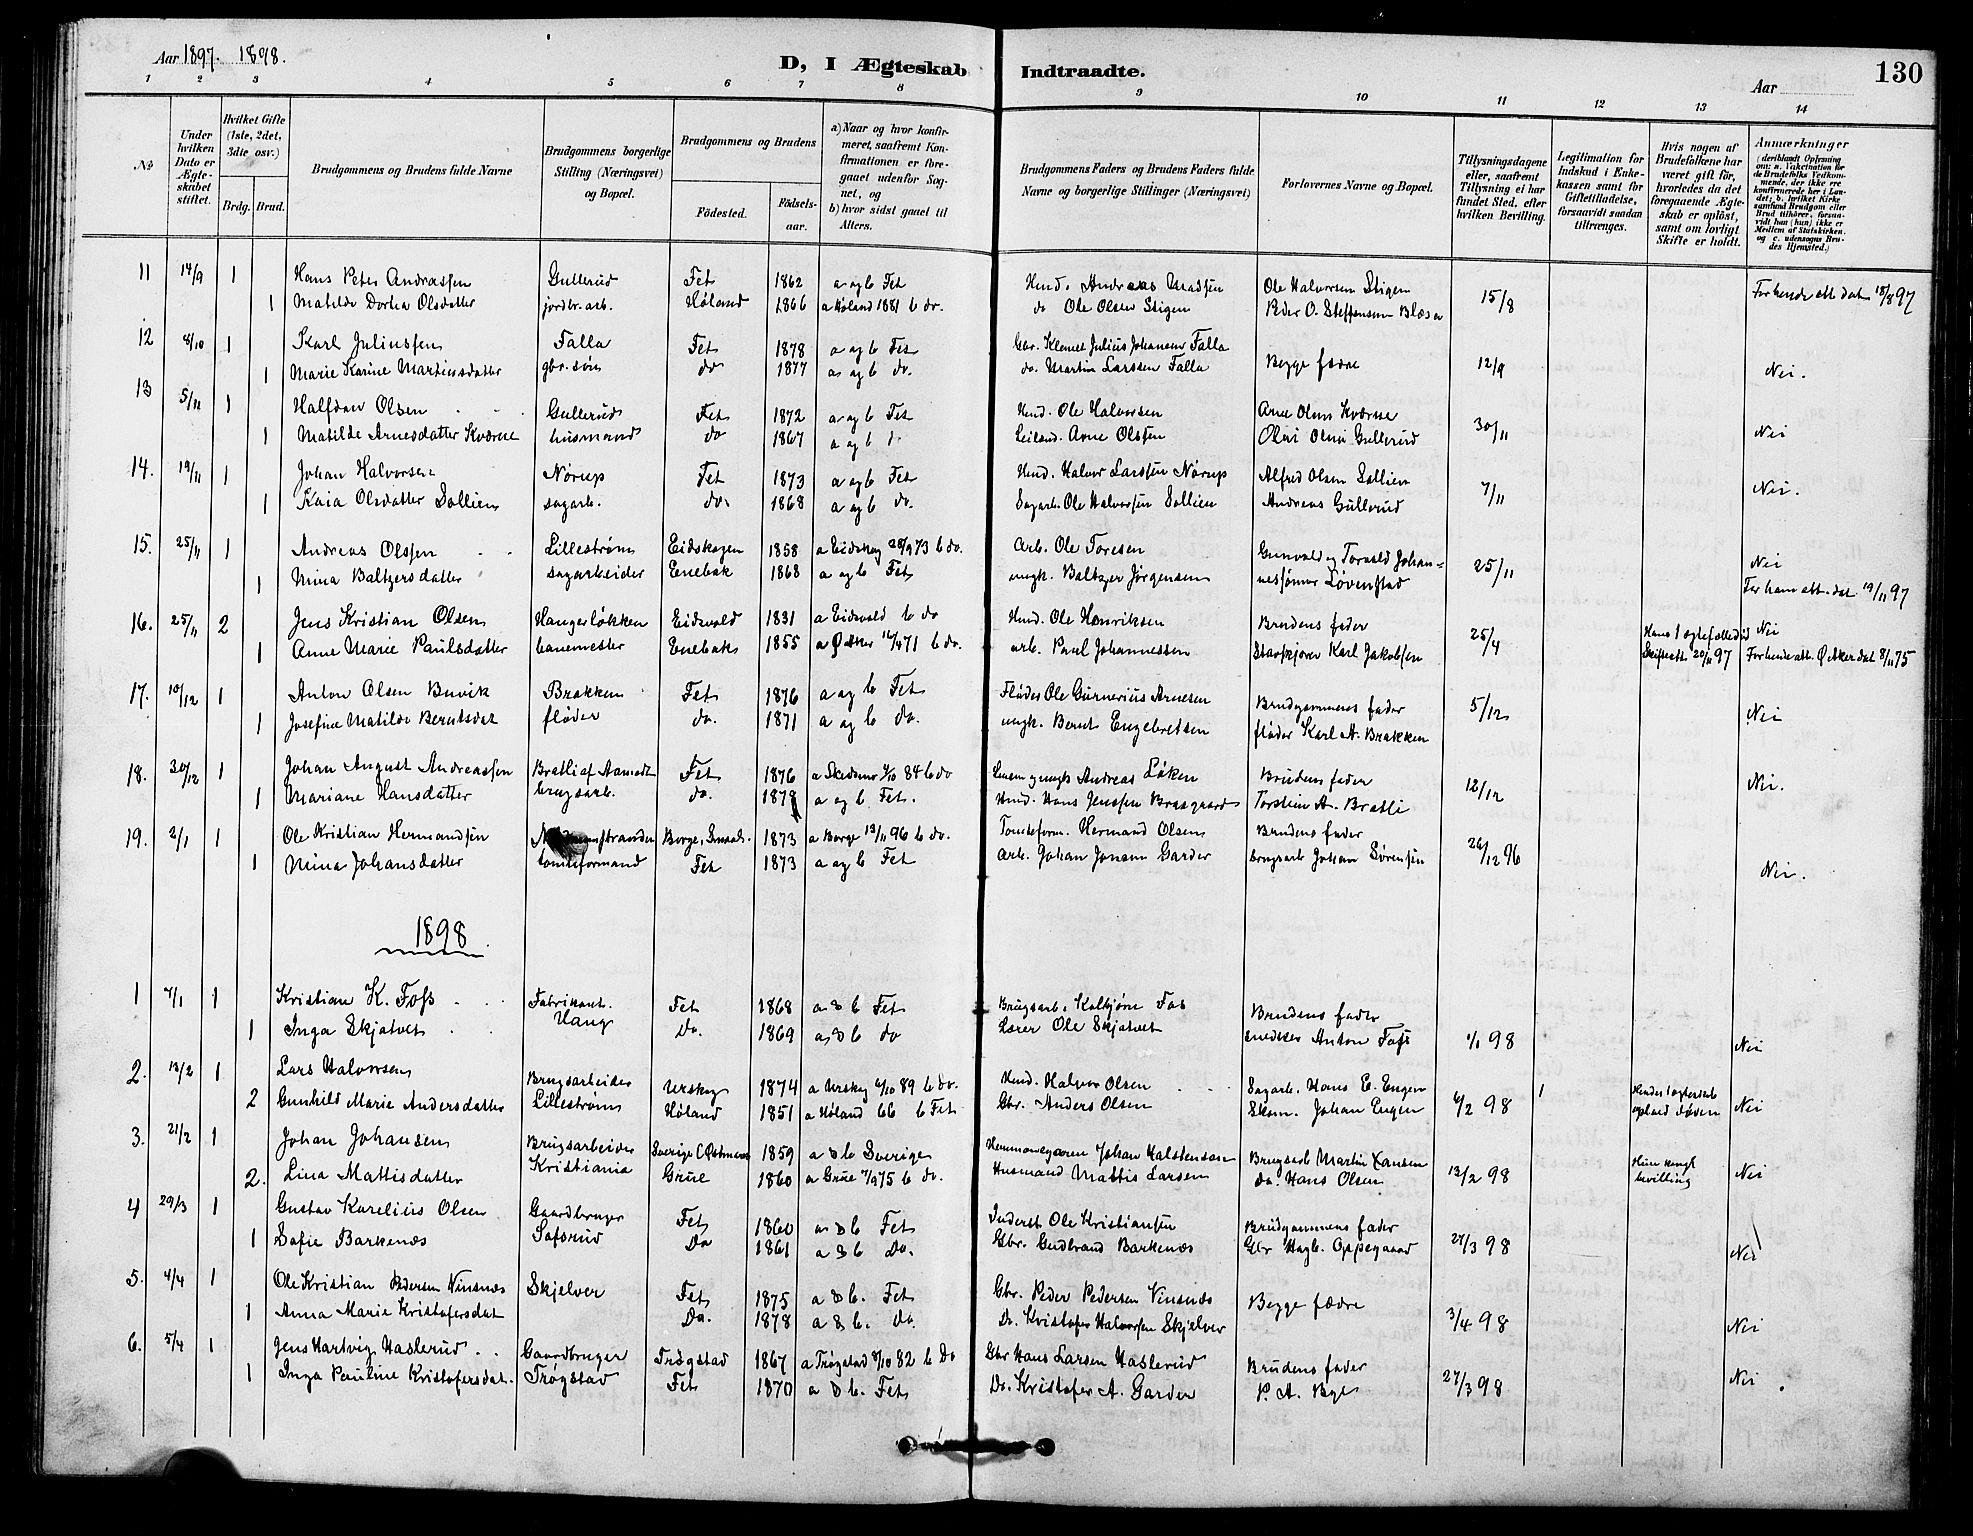 Aar 1897. 1898.
D, I Ægteskab Indtraadte.
Aar
130
1 2 3 4 5 6 7 8 9 10 11 12 13 14
№
Under hvilken Dato er Ægteskabet stiftet.
Hvilket Gifte (1ste, 2det, 3die osv.)
Brdg. Brud.
Brudgommens og Brudens fulde Navne
Brudgommens borgerlige Stilling (Næringsvei) og Bopæl.
Brudgommens og Brudens
Fødested.
Fødselsaar.
a) Naar og hvor konfirmeret, saafremt Konfirmationen er foregaaet udenfor Sognet, og
b) hvor sidst gaaet til Alters.
Brudgommens Faders og Brudens Faders fulde Navne og borgerlige Stillinger (Næringsvei)
Forlovernes Navne og Bopæl.
Tillysningsdagene eller, saafremt Tillysning ei har fundet Sted, efter hvilken Bevilling.
Legitimation for Indskud i Enkekassen samt for Giftetilladelse, forsaavidt saadan tiltrænges.
Hvis nogen af Brudefolkene har været gift før, hvorledes da det foregaaende Ægteskab er opløst, samt om lovligt Skifte er holdt.
Anmærkninger (deriblandt Oplysning om: a. Vakcination for de Brudefolks Vedkommende, der ikke ere konfirmerede her i Landet; b. hvilket Kirkesamfund Brudgom eller Brud tilhører, forsaavidt han (hun) ikke er Medlem af Statskirken, og c. udensogns Brudes Hjemsted.)
11 14/9 1 Hans Peter Andrassen Gullerud Fet 1862 a og b Fet Husd. Andreas Madsen Ole Halvorsen Stigen 15/8 For hende att. dat. 18/8 97
1 Matilde Dorthea Olsdatter jordbr. arb. Høland 1866 a Høland 1881 b do. do Ole Olsen Stigen Peder O. Steffensen
12 8/10 1 Karl Juliussen Falla Fet 1878 a og b Fet Gbr. Klemet Julius Johansen Falla Begge fædre 12/9 Nei.
1 Marie Karine Martinsdatter gbr. søn do 1877 a og b do. do. Martin Larssen Falla
13 5/11 1 Halfdan Olsen Gullerud Fet 1872 a og b Fet Husd. Ole Halvorsen Arne Olsen Kværne 30/11 Nei
1 Matilde Arnesdatter Kværne husmand do 1867 a og b Leiland. Arne Olsen Gullerud
14. 19/11 1 Johan Halvorsen Nørup Fet 1873 a og b Fet Husd. Halvor Larssen Nørup Alfred Olsen Sollien 7/11 Nei.
1 Kaia Olsdatter Sollien sagarb. do. 1868 a og b do. Sagarb. Ole Halvorsen Sollien Andreas Gullerud
15. 25/11 1 Andreas Olssen Lillestrøm Eidskogen 1858 a Eidskog 28/9 73 b do. Arb. Ole Toresen Gunvald og Torvald Johan- 25/11 Nei
1 Mina Baltzersdatter sagarbeider Enebak 1868 a og b Fet ungk. Baltzer Jørgensen nessønner Løvenstad For ham att. dat 19/11 97
16. 25/11 2 Jens Kristian Olsen Haugerløkken Eidsvold 1831 a Eidsvold b do Husd. Ole Henriksen Brudens fader 25/4 Hans 1 ægtefælle Nei
1 Anne Marie Paulsdatter banemester Enebak 1855 a Ø Aker 71 b do. arb. Paul Johannessen Karl Jakobsen Skifteatt. 20/11 97 For hende att. Ø Aker dat 8/11 75
17. 10/12 1 Anton Olsen Buvik Brakken Fet 1876 a og b Fet Fløder Ole Gunerius Arnesen Brudgommens fader 5/12 Nei
1 Josefine Matilde Berntsdat fløder do. 1871 a og b do. ungk. Bernt Engebretsen fløder Karl A. Brakken
18. 30/12 1 Johan August Andreassen Bratli af Aamodt Fet 1876 a Skedsmo /10 84 b do Andreas Løken Brudens fader 12/12 Nei.
1 Mariane Hansdatter brugsarb. do. 187 a og b Fet. Husd. Hans Jenssen Torstein A. Bratli
19. 2/1 1 Ole Kristian Hermandsen stranden Borge, Smaal. 1873 a Borge 13/11 96 b do. Tomteform. Hermand Olsen Brudens fader 26/12 96
1 Mina Johansdatter tomteformand Fet 1873 a og b Fet arb. Johan Jonsen Garder brugsarb Johan Sørensen Nei.
1898
1 7/1 1 Kristian K. Foss Fabrikant. Fet 1868 a & b Fet Brugsarb. Kolbjørn Fos Brudens fader
1 Inga Skjatvet Haug Do. 1869 a & b do Lærer Ole Skjatvet snedker Anton Foss 1/1 98 Nei
2. 13/2 1 Lars Halvorsen Brugsarbeider Urskog 1874 a Urskog 6/10 89 b do. Husd. Halvor Olsen Sagarb. Hans E. Engen 6/2 98 1 Hendes 1 ægteskab Nei
2 Gunhild Marie Andersdatter Lillestrøm Høland 1851 a Høland 66 b Fet Gbr. Anders Olsen Skom. Johan Engen ophæd døden
3. 21/2 1 Johan Johansen Brugsarbeider Sverige 1859 a & b Sverige Hemmansegaren Johan Halstensson Brugsarb Martin Hansen 13/2 98 Nei
2. Lina Mattisdatter Kristiania Grue 1860 a Grue 75 b do. Husmand Mattis Larsen Do. Hans Olsen bevilling
4 29/3 1 Gustav Karelius Olsen Gaardbruger Fet 1860 a & b Fet Inderst Ole Kristiansen Brudgommens fader 27/3 98
1 Sofie Barkenæs Do 1861 a & b Do. Gbr. Gudbrand Barkenæs Gbr Hagb. Oppegaard Nei
5. 4/4 1 Ole Kristian Pedersen Vinsnæs Skjelver Fet 1875 a & b. Fet Gbr. Peder Pedersen Vinsnæs Begge fædre 3/4 98
1 Anna Marie Kristofersdat Do. 1878 a & b. do. Do. Kristofer Halvorsen Skjelver Nei
6. 5/4 1 Jens Hartvig Haslerud Gaardbruger Trøgstad 1867 a Trøgstad 8/10 82 b Do Gbr Hans Larsen Haslerud Brudens fader 27/3 98 Nei
1 Inga Pauline Kristofersdat. Trøgstad Fet 1870 a & b. Fet Do. Kristofer A. Garder P. A. Bye